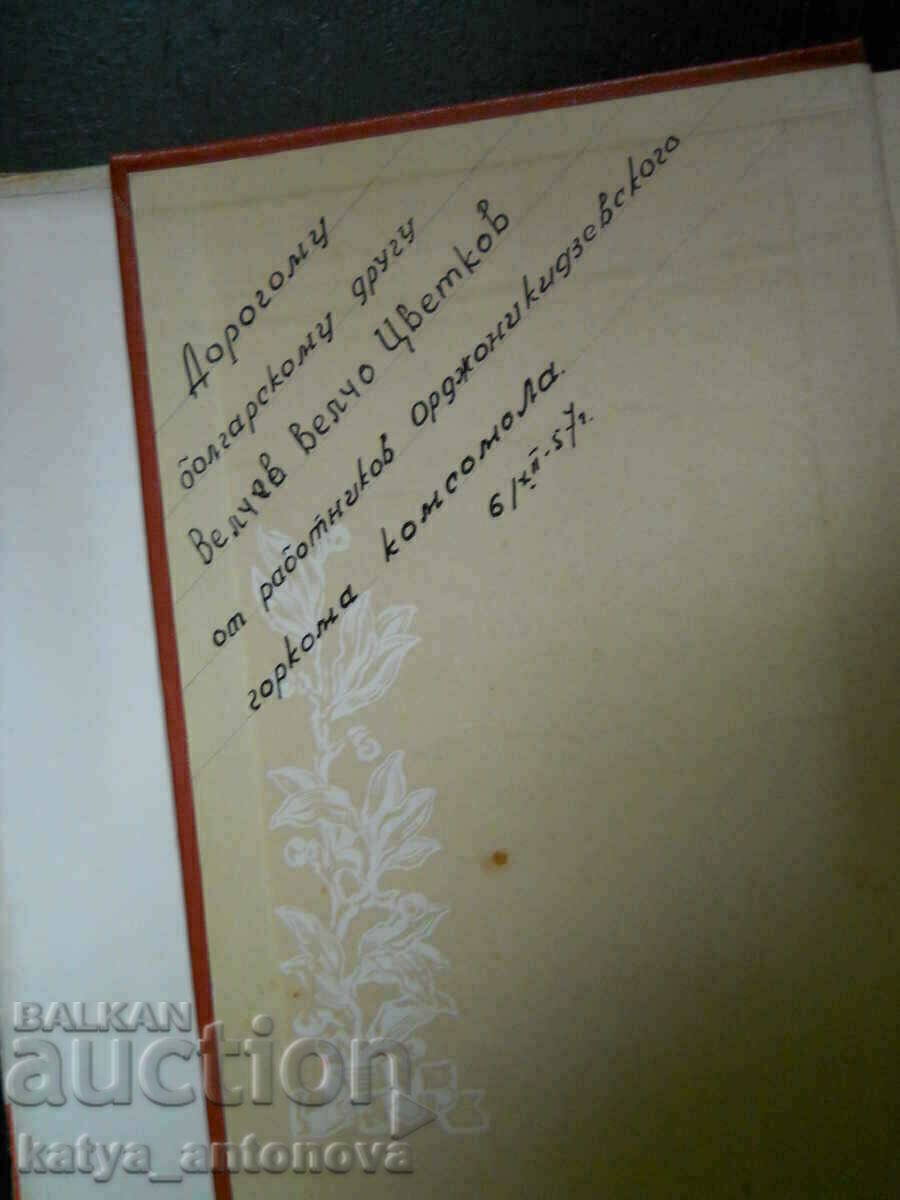 Дорогому
болгарскому другу
Велчев Велчо Цветков
от работников Орджоникидзевского
горкома комсомола.
6/XII-57г.
BALKAN
auction
katya_antonova